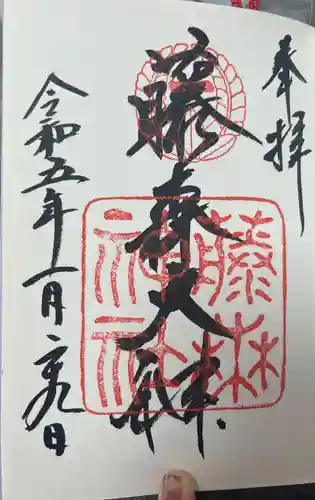 奉拝
藤森大神
藤森神社
令和五年一月二九日